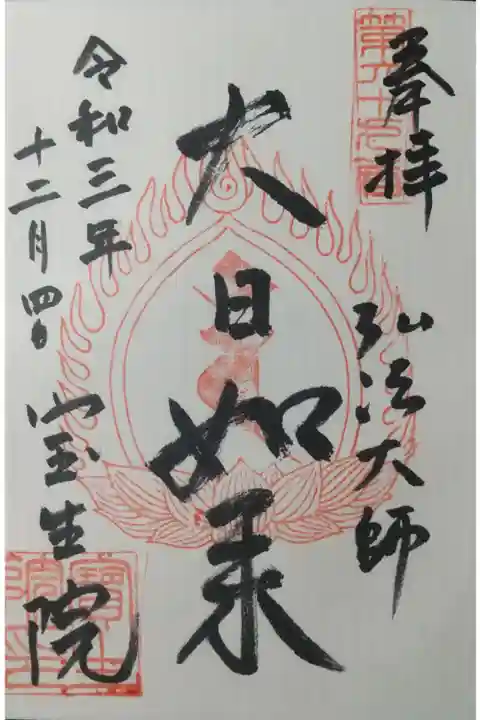 奉拝
弘法大師
大日如来
令和三年
十二月四日
宝生院